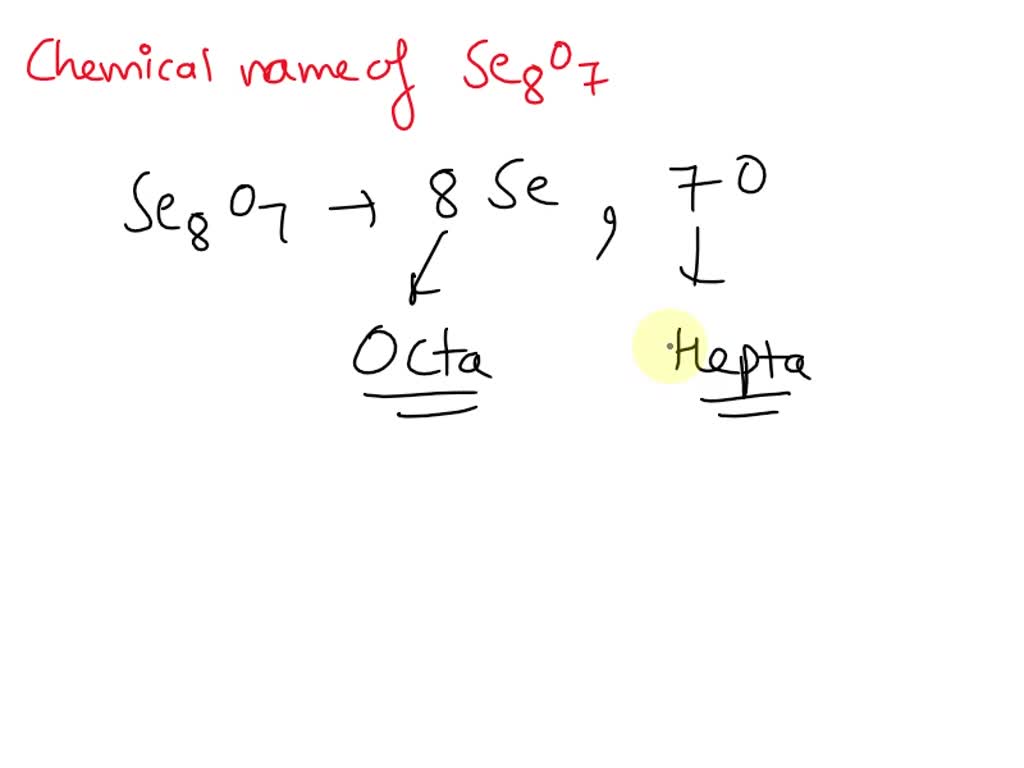 Chemical name of Se₈O₇
Se₈O₇ → 8 Se , 7 O
Octa Hepta